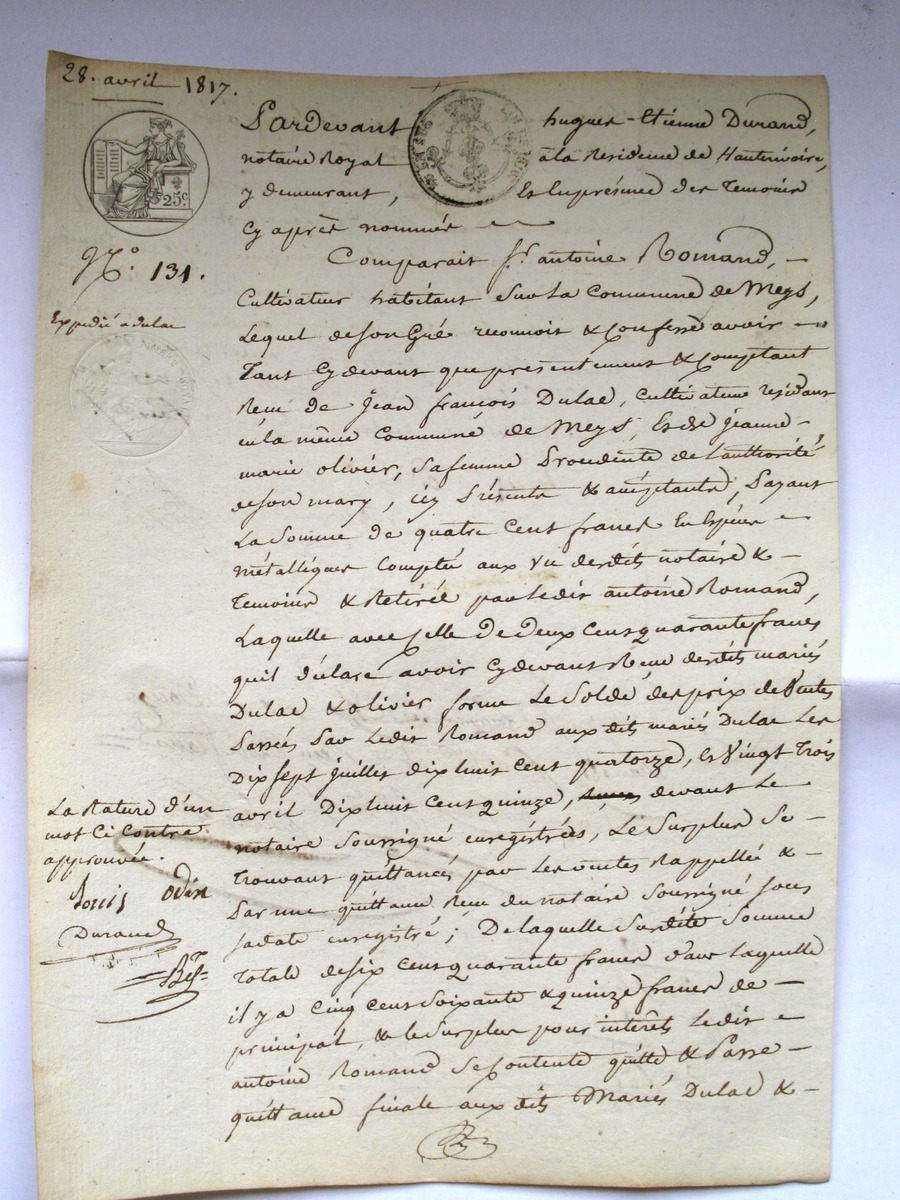 28. avril 1817.
25c
No. 131.
Expédié a dulac
Pardevant hugues-Etienne Durand,
notaire Royal à la Residence de Hauterivoire,
y demeurant, Es En présence des Temoins
Cy après nommés
Comparait Sr. antoine Romand,
Cultivateur habitant Sur La Commune de Meys,
Lequel de Son Gré reconnoit & Confesse avoir
Tant Cy devant que présentement & Comptant
Recu de Jean françois Dulac, Cultivateur residant
en la même Commune de Meys, Es de jeanne
marie olivier, Sa femme Procedente de L'authorité
de Son mary, icy Présents & acceptants, Payant
La Somme de quatre Cent francs En Espèces
métalliques Comptée aux vu desdits notaire &
Temoins & Retirée par Ledit antoine Romand,
Laquelle avec Celle De Deux Cens quarante francs
quil déclare avoir Cy devant Recue desdits mariés
Dulac & olivier forme Le Solde des prix de Ventes
Passées Par Ledit Romand aux dits mariés Dulac Les
Dix Sept juillet dix huit Cent quatorze, Es Vingt Trois
avril Dixhuit Cens quinze, devant Le
notaire Soussigné enregistrées, Le Surplus Se
Trouvant quittancés par Les ventes Rappellée &
Par une quittance Recu du notaire Soussigné Sous
Sa date enregistré; De laquelle Surdite Somme
Totale de Six Cens quarante francs dans Laquelle
il y a Cinq Cens Soixante & quinze francs de
principal, & le Surplus pour intérêts Ledit
antoine Romand Se Contente quitte & Passe
quittance finale aux dits Mariés Dulac &
La Rature d'un
mot Ci Contre
approuvée.
Louis Odin
Durand